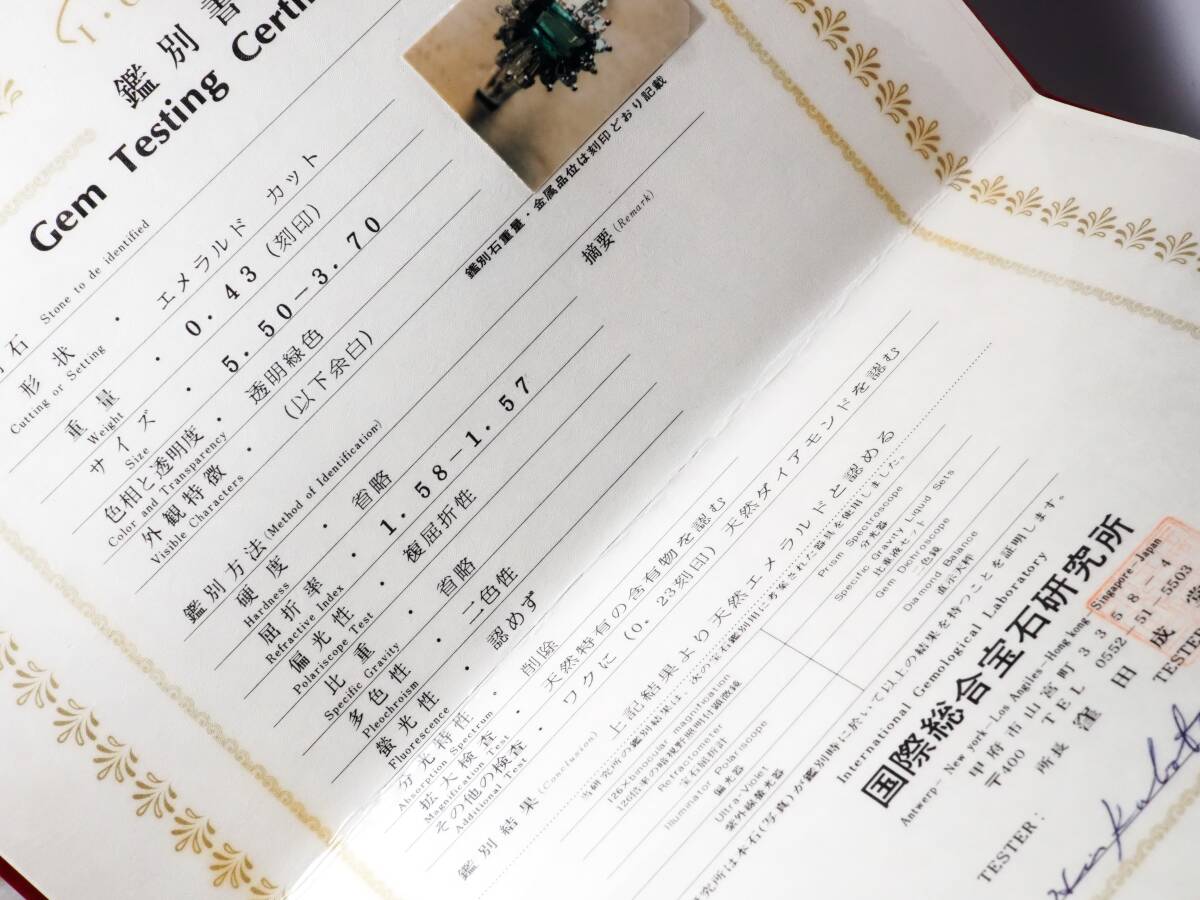 鑑別書
Gem Testing
石
Stone to de identified
形状・エメラルド カット
Cutting or Setting
重量・0.43(刻印)
Weight
サイズ・5.50-3.70
Size
色相と透明度・透明緑色
Color and Transparency
外観特徴・(以下余白)
Visible Characters
鑑別石重量・金属品位は刻印どおり記載
鑑別方法(Method of Identification)
硬度・省略
Hardness
屈折率・1.58-1.57
Refractive Index
偏光性・複屈折性
Polariscope Test
比重・省略
Specific Gravity
多色性・二色性
Pleochroism
螢光性・認めず
Fluorescence
摘要(Remark)
分光特性・削除
Absorption Spectrum
拡大検査・天然特有の含有物を認む
Magnification Test
その他の検査・ワクに(0.23刻印)天然ダイアモンドを認む
Additional Test
鑑別結果(Conclusion) 上記結果より天然エメラルドと認める
当研究所の鑑別結果は、次の宝石鑑別用に考案された器具を使用しました。
126×binocular magnification
126倍率の暗視野照明付顕微鏡
Refractometer
宝石屈折計
Illuminator Polariscope
偏光器
Ultra-Violet
紫外線螢光器
Prism Spectroscope
分光器
Specific Gravity Liquid Sets
比重液セット
Gem Dichroscope
二色鏡
Diamond Balance
直示天秤
研究所は本石(写真)が鑑別時に於いて以上の結果を持つことを証明します。
International Gemological Laboratory
国際総合宝石研究所
Antwerp-New york-Los Angiles-Hong kong
Singapore-Japan
〒400 甲府市山宮町3358-4
TEL 0552-51-5503
所長 窪田成
TESTER:
TESTER